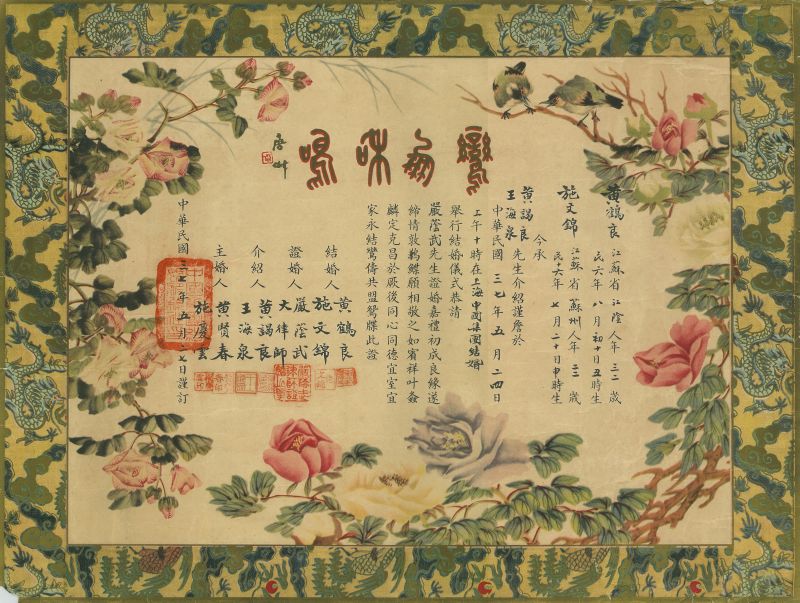 鸞舞和鳴
黃鶴良 江蘇省江陰人年三二歲
民六年八月初十日丑時生
施文錦 江蘇省蘇州人年二二歲
民十六年七月二十日申時生
今承
黃謁良
王海泉 先生介紹謹詹於
中華民國三七年五月二四日
上午十時在上海中國集團結婚
舉行結婚儀式恭請
嚴蔭武先生證婚嘉禮初成良緣遂
締情敦鶼鰈願相敬之如賓祥叶螽
麟定克昌於厥後同心同德宜室宜
家永結鸞儔共盟鴛牒此證
結婚人 黃鶴良
施文錦
證婚人 嚴蔭武
大律師
介紹人 黃謁良
王海泉
主婚人 黃賢春
施慶雲
中華民國三七年五月 七日謹訂